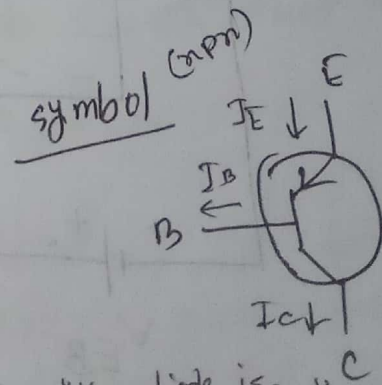 symbol (npn)
E
IE ↓
IB
←
B
IC↓
C